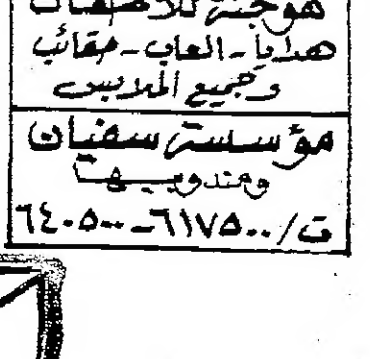 هدايا - العاب - حقائب
وجميع الملابس
مؤسسة سفيان
ومندوبيها
ت/٦١٧٥٠٠ - ٦٤٠٥٠٠